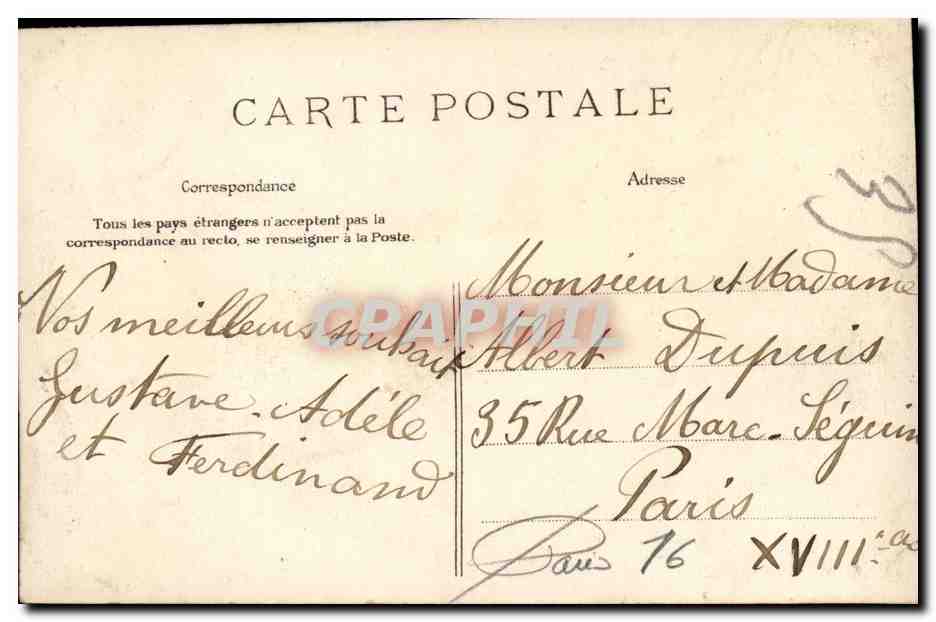 CARTE POSTALE
Correspondance
Tous les pays étrangers n'acceptent pas la
correspondance au recto, se renseigner à la Poste.
Vos meilleurs souhaits
Gustave. Adèle
et Ferdinand
Adresse
Monsieur et Madame
Albert Dupuis
35 Rue Marc-Séguin
Paris
Paris 16 XVIII
CPAPHIL